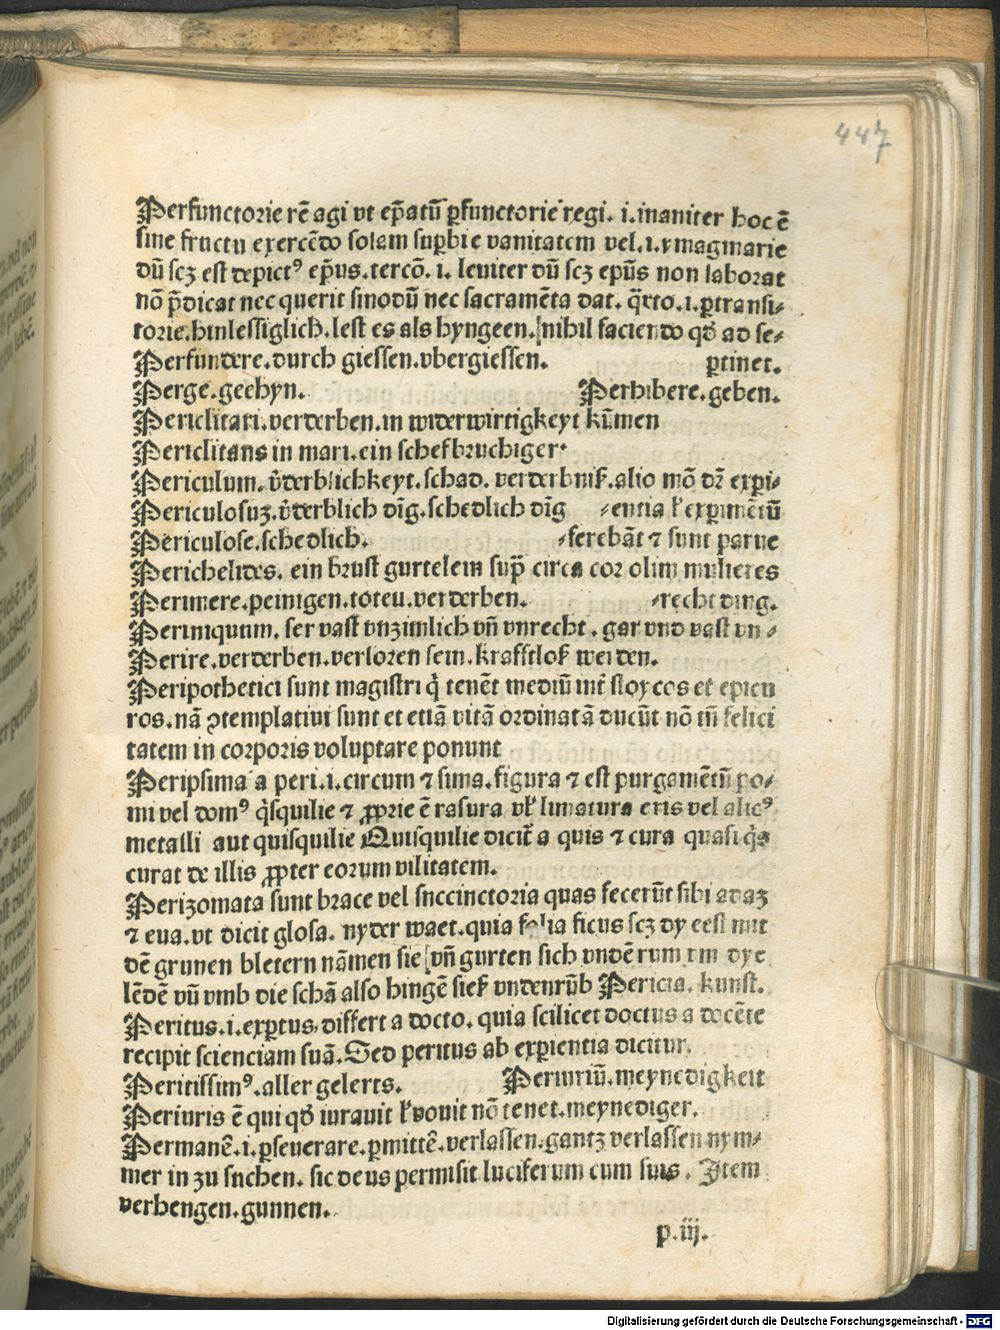 447
Perfunctorie rē agi vt ep̄atū ꝑfunctorie regi. i. inaniter hoc ē
sine fructu exercēdo solam suꝑbie vanitatem vel .i. ymaginarie
dū scꝫ est depictꝰ ep̄us. tercō. i. leuiter dū scꝫ ep̄us non laborat
nō p̄dicat nec querit sinodū nec sacramēta dat. q̈rto .i. ꝑtransi⸗
torie. hinlessiglich. lest es als hyngeen. [nihil faciendo qđ ad se⸗
Perfundere. durch giessen. vbergiessen. ꝑtinet.
Perge. geehyn. Perhibere. geben.
Periclitari. verderben. in widerwirtigkeyt kūmen
Periclitans in mari. ein schefbruchiger.
Periculum. v̄derblichkeyt. schad. verderbniß. alio mō dr̄ exꝑi⸗
Periculosuꝫ. v̄derblich dīg. schedlich dīg ⸗entia ł exꝑimētū
Periculose. schedlich. ⸗ferebāt ⁊ sunt parue
Perichelides. ein brust gurtelein suꝑ circa cor olim mulieres
Perimere. peinigen. toteu. verderben. ⸗recht ding.
Periniquum. ser vast vnzimlich vn̄ vnrecht. gar vnd vast vn⸗
Perire. verderben. verloren sein. krafftloß werden.
Peripothetici sunt magistri q̇ tenēt mediū int̄ stoycos et epicu
ros. nā ꝯtemplatiui sunt et etiā vitā ordinatā ducūt nō tn̄ felici
tatem in corporis voluptare ponunt
Peripsima a peri .i. circum ⁊ sima. figura ⁊ est purgamētū po⸗
mi vel domꝰ q̇squilie ⁊ ꝓprie ē rasura vł limatura eris vel alicꝰ
metalli aut quisquilie Quisquilie dicit̄ a quis ⁊ cura quasi q̇s
curat de illis ꝓpter eorum vilitatem.
Perizomata sunt brace vel snccinctoria quas fecerūt sibi adaꝫ
⁊ eua. vt dicit glosa. nyder waet. quia folia ficus scꝫ dy eest mit
dē grunen bletern nāmen sie [vn̄ gurten sich vndē rvm vm dye
lēdē vū vmb die schā also hingē sieß vndenrūb Pericia. kunst.
Peritus .i. exꝑtus. differt a docto. quia scilicet doctus a docēte
recipit scienciam suā. Sed peritus ab exꝑientia dicitur.
Peritissimꝰ. aller gelerts. Periuriū. meynedigkeit
Periuris ē qui qđ iurauit ł vouit nō tenet. meynediger.
Permanē. i. ꝑseuerare. ꝑmittē. verlassen. gantz verlassen nym⸗
mer in zu snchen. sic deus permisit luciferum cum suis. Item
verhengen. gunnen.
p. iij.
Digitalisierung gefördert durch die Deutsche Forschungsgemeinschaft - DFG